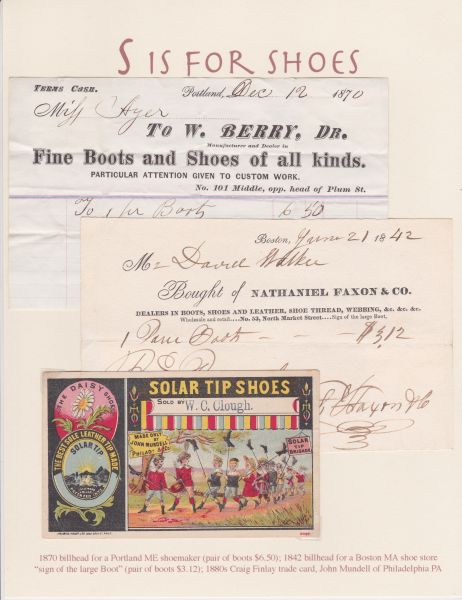 S IS FOR SHOES
TERMS CASH.
Portland, Dec 12 1870
Miss Ayer
TO W. BERRY, DR.
Manufacturer and Dealer in
Fine Boots and Shoes of all kinds.
PARTICULAR ATTENTION GIVEN TO CUSTOM WORK.
No. 101 Middle, opp. head of Plum St.
To 1 Pr Boots 6.50
Boston, June 21 1842
Mr David Walker
Bought of NATHANIEL FAXON & CO.
DEALERS IN BOOTS, SHOES AND LEATHER, SHOE THREAD, WEBBING, &c. &c. &c.
Wholesale and retail....No. 53, North Market Street....Sign of the large Boot,
1 Pair Boots - - - $3,12
Faxon & Co
THE DAISY SHOE
THE BEST SOLE LEATHER TIP MADE
SOLAR TIP
SOLAR TIP SHOES
SOLD BY W. C. Clough.
MADE ONLY BY
JOHN MUNDELL & CO
PHILADA.
SOLAR TIP BRIGADE
1870 billhead for a Portland ME shoemaker (pair of boots $6.50); 1842 billhead for a Boston MA shoe store
"sign of the large Boot" (pair of boots $3.12); 1880s Craig Finlay trade card, John Mundell of Philadelphia PA